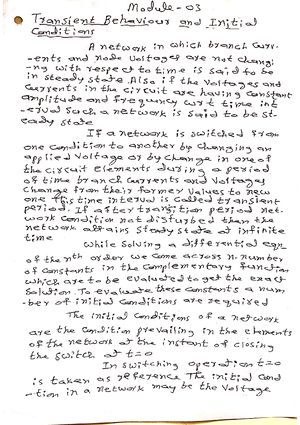 Module-03
Transient Behaviour and Initial
Conditions
A network in which branch Curr-
-ents and node Voltages are not changi
-ng with respect to time is said to be
in steady state. Also if the Voltages and
Currents in the circuit are having constant
amplitude and frequency wrt time int
-erval such a network is said to be st-
eady state
If a network is switched from
one condition to another by changing an
applied Voltage or by change in one of
the circuit elements during a period
of time branch currents and voltages
change from their former values to new
one This time interval is called transient
period. If after transition period net-
work condition not disturbed then the
network attains steady state at infinite
time
While solving a differential eqn
of the nth order we come across n number
of constants in the complementary function
which are to be evaluated to get the exact
solution. To evaluate these constants a num
-ber of initial conditions are required
The initial conditions of a network
are the condition prevailing in the elements
of the network at the instant of closing
the switch at t=0
In switching operation t=0
is taken as reference The initial cond
-tion in a network may be the voltage